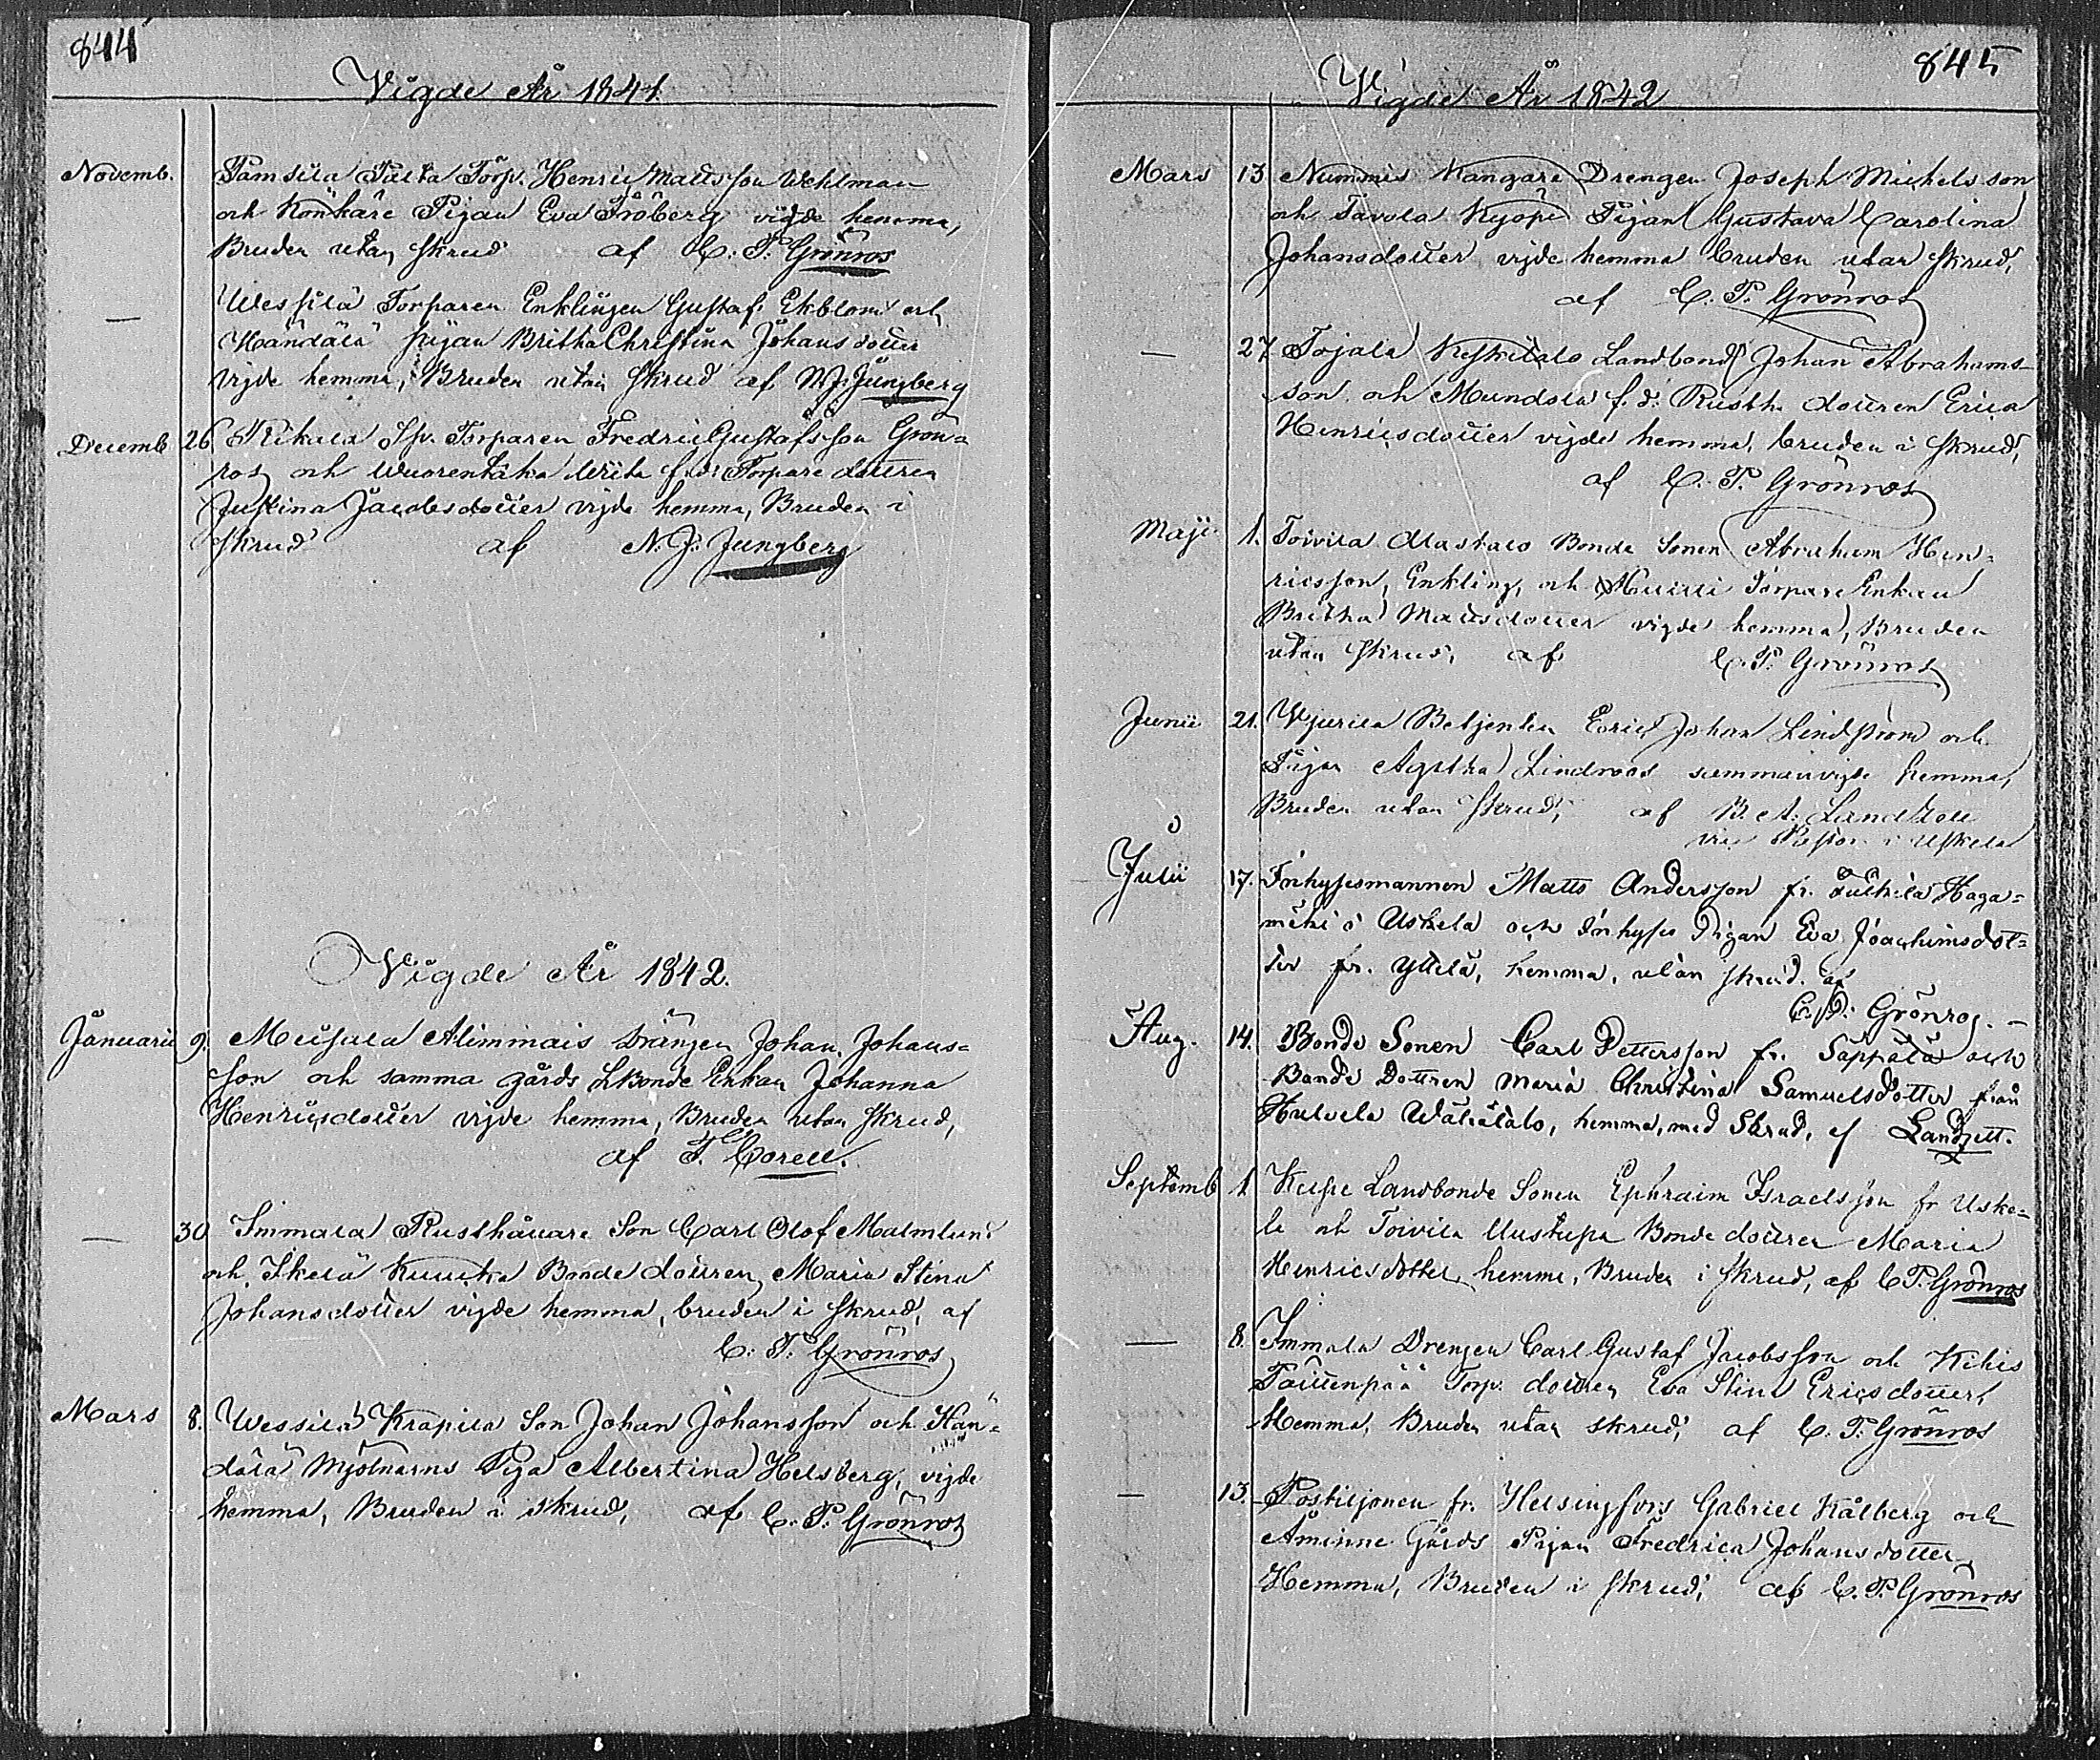 844
Vigde År 1841.
Novemb. Pamsila Torp. Henric Mattsson Wehlman
och Könkäre Pigan Eva Fröberg vigde hemma,
Bruden utan skrud af C. P. Grönros
— Wessilä Torparen Enklingen Gustaf Ekblom och
Händälä pijan Britha Christina Johansdotter
vijde hemma, Bruden utan skrud af N. J. Jungberg
Decemb. 26. Rikala Sp. Torparen Fredric Gustafsson Grön=
ros och Wuorentaka f. d. Torpare dottren
Justina Jacobsdotter vijde hemma, Bruden i
skrud af N. J. Jungberg
Vigde År 1842.
Januarii 9. Alimmais Drängen Johan Johans=
son och samma gårds LBonde Enkan Johanna
Henricsdotter vijde hemma, Bruden utan skrud,
af T. Corell.
— 30 Immala Rusthållare Son Carl Olof Malmlund
och Ikelä Bonde dottren Maria Stina
Johansdotter vigde hemma, bruden i skrud, af
C. P. Grönros
Mars 8. Wessilä Krapila Son Johan Johansson och Hän=
dälä Mjölnarns Piga Albertina Helsberg, vigde
hemma, Bruden i skrud, af C. P. Grönros
845
Vigde År 1842
Mars 13 Nummis Kangare Drengen Joseph Michelsson
och Tavola Kyöpi Pijan Gustava Carolina
Johansdotter vijde hemma bruden utan skrud,
af C. P. Grönros
— 27 Tojala Keskitalo Landbond Johan Abrahams-
son och Mundola f. d. Rusth. dottren Erica
Henricsdotter vigde hemma, bruden i skrud,
af C. P. Grönros
Maji 1. Toivila Alastalo Bonde Sonen Abraham Hen=
ricsson, Enkling, och Torpare Enkan
Britha Mattsdotter vigde hemma, Bruden
utan skrud, af C. P. Grönros
Junii 21. Wjurila Betjenten Eric Johan Lindström och
Pigan Agatha Lindroos sammanvigde hemma,
Bruden utan skrud, af B. A. Landzett
vice Pastor i Uskela
Julii 17. Inhysesmannen Matts Andersson fr. Haga=
mäki i Uskela och Inhyses Pigan Eva Joachimsdot=
ter fr. Ylilä, hemma, utan skrud. af
C. P. Grönros. –
Aug. 14. Bonde Sonen Carl Pettersson fr. Säppälä och
Bonde Dottren Maria Christina Samuelsdotter från
Hulvela Wälitalo, hemma, med Skrud, af Landzett.
Septemb 1. Landbonde Sonen Ephraim Israelsson fr Uske=
la och Toivila Uustupa Bonde dottren Maria
Henricsdotter, hemma, Bruden i skrud, af C P. Grönros
— 8. Immala Drengen Carl Gustaf Jacobsson och Kihis
Torp. dottren Eva Stina Ericsdotter,
Hemma, Bruden utan skrud, af C. P. Grönros
— 13. Postiljonen fr. Helsingfors Gabriel Kålberg och
Åminne Gårds Pigan Fredrica Johansdotter
Hemma, Bruden i skrud, af C. P. Grönros